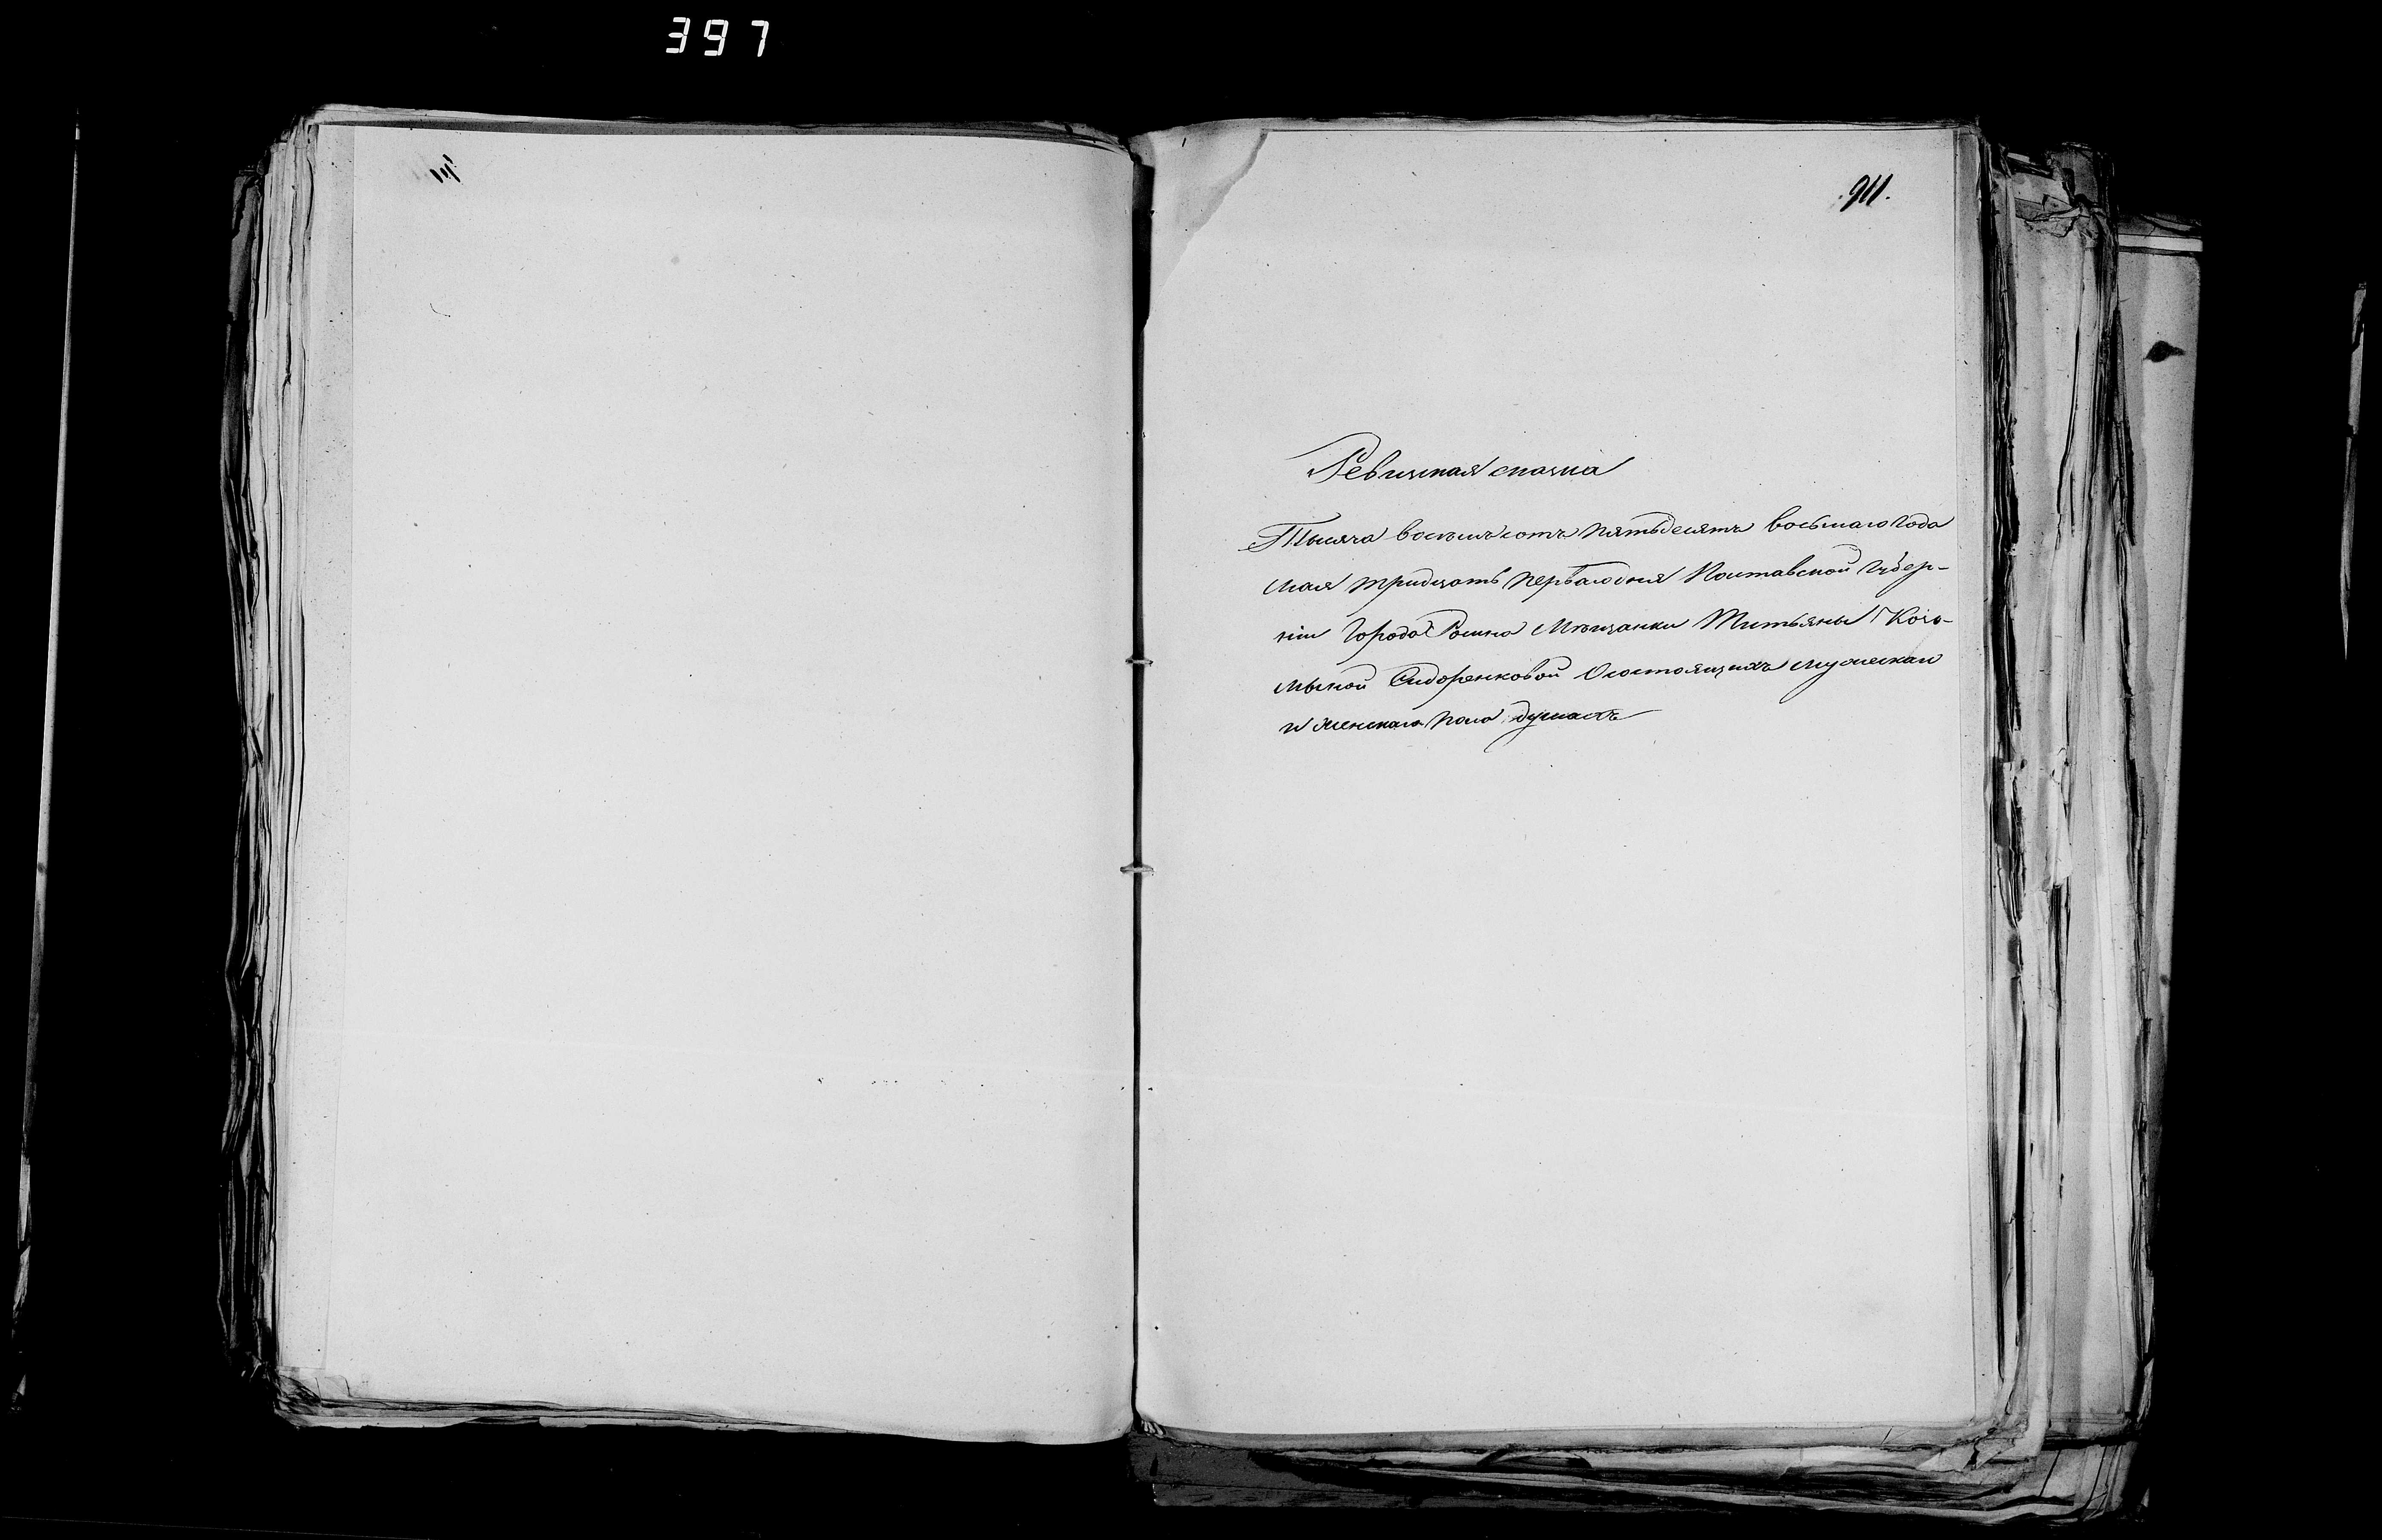 397
911.
Ревижская сказка
Тысяча восемьсотъ пятьдесятъ восьмаго года
мая тридцать перваго дня Полтавской Губер-
ніи города Ромна Мѣщанки Татьяны
Сидоренковой О состоящихъ мужескаго
и женскаго пола душахъ